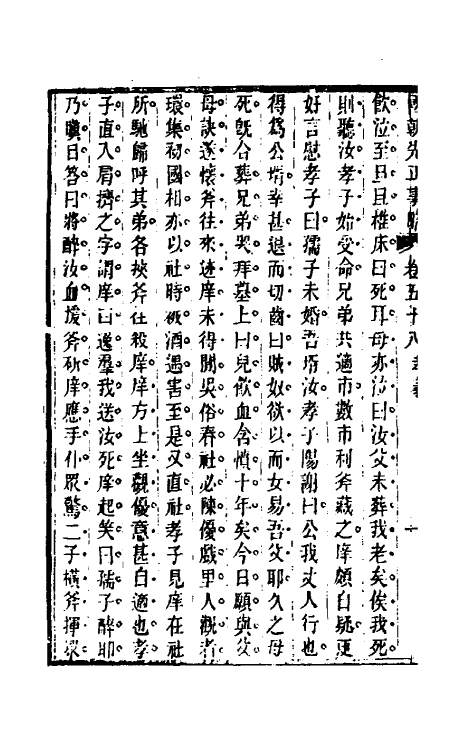 國朝先正事略 卷五十八 孝義 一
飲泣至旦且椎床曰死耳母亦泣曰汝父未葬我老矣俟我死
則聽汝孝子始受命兄弟共適市數市利斧藏之庠頗自疑更
好言慰孝子曰孺子未婚吾壻汝孝子陽謝曰公我丈人行也
得為公壻幸甚退而切齒曰賊奴欲以而女易吾父耶久之母
死旣合葬兄弟哭拜墓上曰兒飲血含憤十年矣今日願與父
母訣遂懷斧往來迹庠未得閒吳俗春社必陳優戲里人觀者
環集初國相亦以社時被酒遇害至是又直社孝子見庠在社
所馳歸呼其弟各挾斧往殺庠庠方上坐觀優意甚自適也孝
子直入肩擠之字謂庠曰逸羣我送汝死庠起笑曰孺子醉耶
乃嗔目答曰將醉汝血援斧斫庠應手仆眾驚二子橫斧揮眾